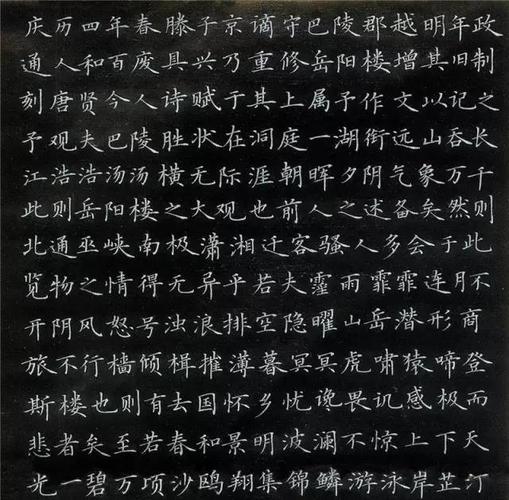 庆历四年春滕子京谪守巴陵郡越明年政
通人和百废具兴乃重修岳阳楼增其旧制
刻唐贤今人诗赋于其上属予作文以记之
予观夫巴陵胜状在洞庭一湖衔远山吞长
江浩浩汤汤横无际涯朝晖夕阴气象万千
此则岳阳楼之大观也前人之述备矣然则
北通巫峡南极潇湘迁客骚人多会于此
览物之情得无异乎若夫霪雨霏霏连月不
开阴风怒号浊浪排空隐曜山岳潜形商
旅不行樯倾楫摧薄暮冥冥虎啸猿啼登
斯楼也则有去国怀乡忧谗畏讥感极而
悲者矣至若春和景明波澜不惊上下天
光一碧万顷沙鸥翔集锦鳞游泳岸芷汀